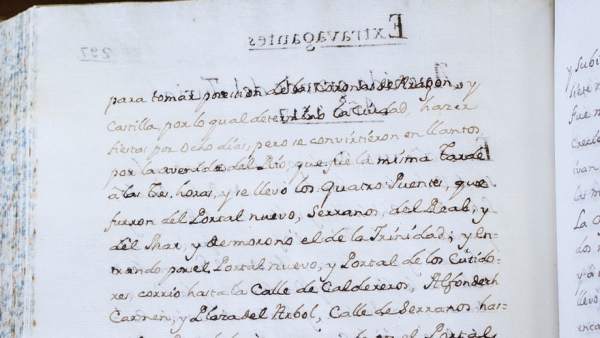 Extravagantes
297
para tomar posesion de las Coronas de Aragon, y
Castilla, por lo qual determinó la Ciudad, hazer
fiestas por Ocho dias, pero se convirtieron en llantos,
por la avenida del Rio, que fue la misma tarde
a las Tres horas, y se llevó los Quatro Puentes, que
fueron del Portal nuevo, Serranos, del Real, y
del Mar, y desmoronó el de la Trinidad; y en-
trando por el Portal nuevo, y Portal de los Curtido-
res, corrió hasta la Calle de Caldereros, Alfondech
Carmen, y Plaza del Arbol, Calle de Serranos has-
en el Portal
y subi
siete
fue
Creci
ivan
las
La
llevó